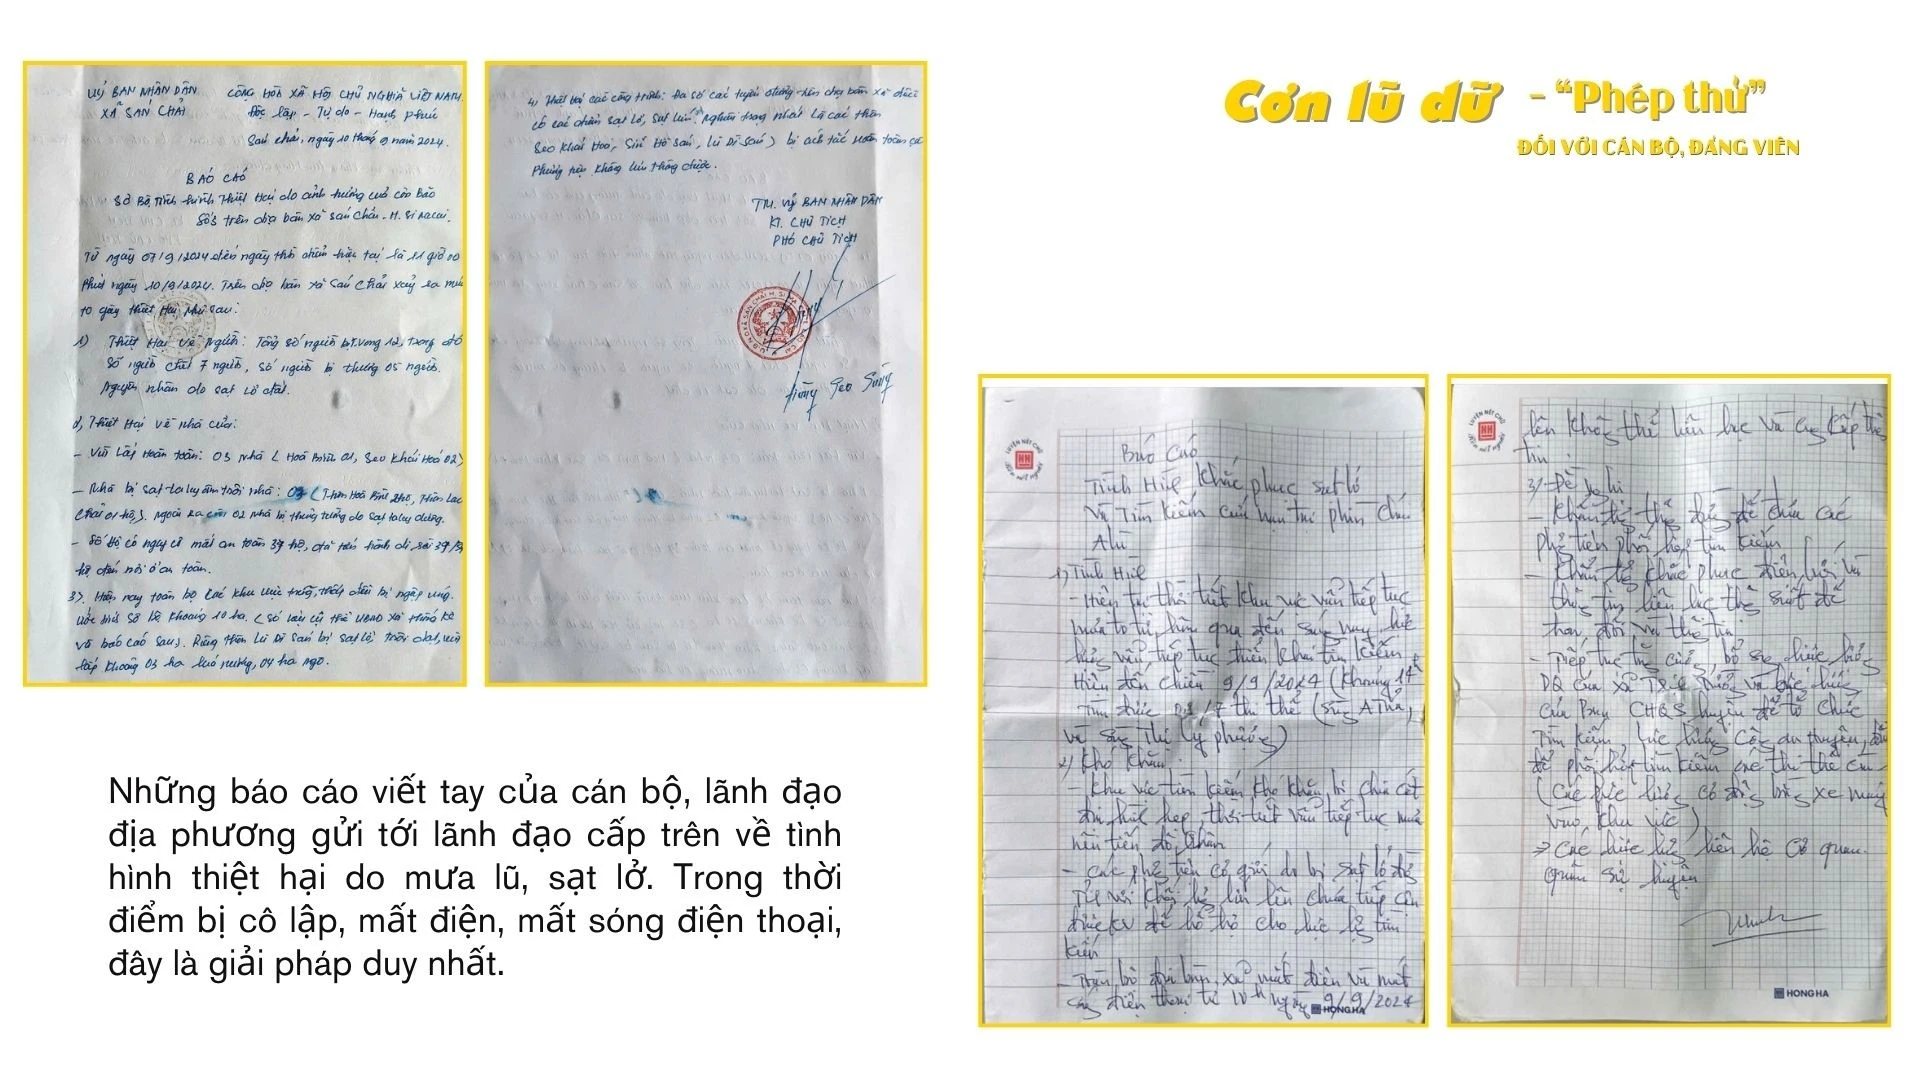 Cơn lũ dữ - “Phép thử”
ĐỐI VỚI CÁN BỘ, ĐẢNG VIÊN
UỶ BAN NHÂN DÂN
XÃ SÁN CHẢI
CỘNG HOÀ XÃ HỘI CHỦ NGHĨA VIỆT NAM
Độc lập - Tự do - Hạnh phúc
Sán chải, ngày 10 tháng 9 năm 2024.
BÁO CÁO
Sơ Bộ, tình hình thiệt hại do ảnh hưởng của cơn Bão
Số 3 trên địa bàn xã Sán Chải - H. Si ma cai.
Từ ngày 07/9/2024 đến ngày thời điểm hiện tại là 11 giờ 00
Phút ngày 10/9/2024. Trên địa bàn xã Sán Chải xảy ra mưa
to gây thiệt hại như sau:
1) Thiệt Hại về người: Tổng số người bị T.vong 12, trong đó
Số người chết 7 người, số người bị thương 05 người.
Nguyên nhân do sạt lở đất.
2, Thiệt Hại về nhà cửa:
- Vùi Lấp Hoàn toàn: 03 nhà ( Hoà Bình 01, Seo Khái Hoá 02)
- Nhà bị sạt taluy 03
Chải 01 hộ). Ngoài ra còn 02 nhà bị do sạt taluy dương.
- Số Hộ có nguy cơ mất an toàn 39 hộ, đã tiến hành di dời 39/39
hộ đến nơi ở an toàn.
3). Hiện nay toàn bộ các khu vực trũng, thấp đều bị ngập úng.
Ước tính sơ bộ khoảng 10 ha. ( Số liệu cụ thể UBND xã thống kê
và báo cáo sau). Riêng thôn Lù Dì Sán bị sạt lở, trôi đất, vùi
lấp khoảng 03 ha lúa nương, 04 ha ngô.
4) Thiệt hại các công trình: Đa số các tuyến đường trên địa bàn xã đều
có các điểm sạt lở, sụt lún Nghiêm trọng nhất là các thôn
Seo Khái Hoá, Sín Hồ Sán, Lù Dì Sán) bị ách tắc hoàn toàn các
Phương tiện không lưu thông được.
TM. UỶ BAN NHÂN DÂN
KT. CHỦ TỊCH
PHÓ CHỦ TỊCH
Giàng Seo Súng
Báo Cáo
Tình Hình khắc phục sạt lở
Và Tìm kiếm cứu nạn tại
1) Tình Hình
- Hiện tại thời tiết khu vực vẫn tiếp tục
mưa to từ hôm qua đến sáng nay, lực
lượng vẫn tiếp tục triển khai tìm kiếm
Hiện đến chiều 9/9/2024 (khoảng 14h
Tìm được /7 thi thể (Sùng A
và Sùng Thị Lý phượng)
2) Khó khăn:
- Khu vực tìm kiếm khó khăn, bị chia cắt
địa hình hẹp, thời tiết vẫn tiếp tục mưa
nên tiến độ chậm
- Các phương tiện cơ giới do bị sạt lở
chưa tiếp cận
được KV để hỗ trợ cho lực lượng tìm
kiếm
- Toàn bộ địa bàn xã mất điện và mất
sóng điện thoại từ 10h ngày 9/9/2024
HONG HA
nên không thể liên lạc và cung cấp thông
tin.
3) Đề nghị
- Khẩn để đưa các
phương tiện phối hợp tìm kiếm
- Khẩn khắc phục điện, lưới và
thông tin liên lạc thông suốt để
trao đổi và thông tin
- Tiếp tục tăng cường, bổ sung lực lượng
DQ của xã và lực lượng
của Ban CHQS huyện để tổ chức
tìm kiếm, lực lượng Công an huyện,
để phối hợp tìm kiếm các thi thể còn
(Các lực lượng cơ động bằng xe máy
vào khu vực)
=> Các lực lượng liên hệ Cơ quan
Quân sự huyện
HONG HA
Những báo cáo viết tay của cán bộ, lãnh đạo
địa phương gửi tới lãnh đạo cấp trên về tình
hình thiệt hại do mưa lũ, sạt lở. Trong thời
điểm bị cô lập, mất điện, mất sóng điện thoại,
đây là giải pháp duy nhất.